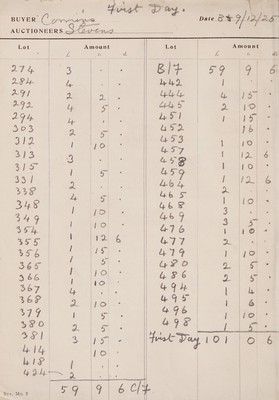 First Day.
BUYER Comins Date 8&9/12/25
AUCTIONEERS Stevens
Lot Amount Lot Amount
£ s. d. £ s. d.
274 3 . .
284 4 . .
291 2 2 .
292 4 5 .
294 4 . .
303 2 5 .
312 1 10 .
313 3 . .
315 1 5 .
331 2 . .
338 4 5 .
348 1 10 .
349 1 10 .
354 1 12 6
355 1 15 .
356 1 5 .
365 1 10 .
366 1 10 .
367 4 . .
368 2 10 .
379 1 5 .
380 2 5 .
381 3 15 .
414 10 .
418 1 . .
424 2 . .
59 9 6 C/7
B/7 59 9 6
442 1 . .
444 4 15 .
445 2 10 .
451 1 15 .
452 16 .
453 1 10 .
457 1 12 6
458 1 10 .
459 1 12 6
464 2 . .
465 1 10 .
468 3 . .
469 3 5 .
476 1 10 .
477 2 . .
479 1 10 .
480 2 5 .
486 2 5 .
494 1 4 .
495 1 6 .
496 1 10 .
498 1 5 .
First Day 101 0 6